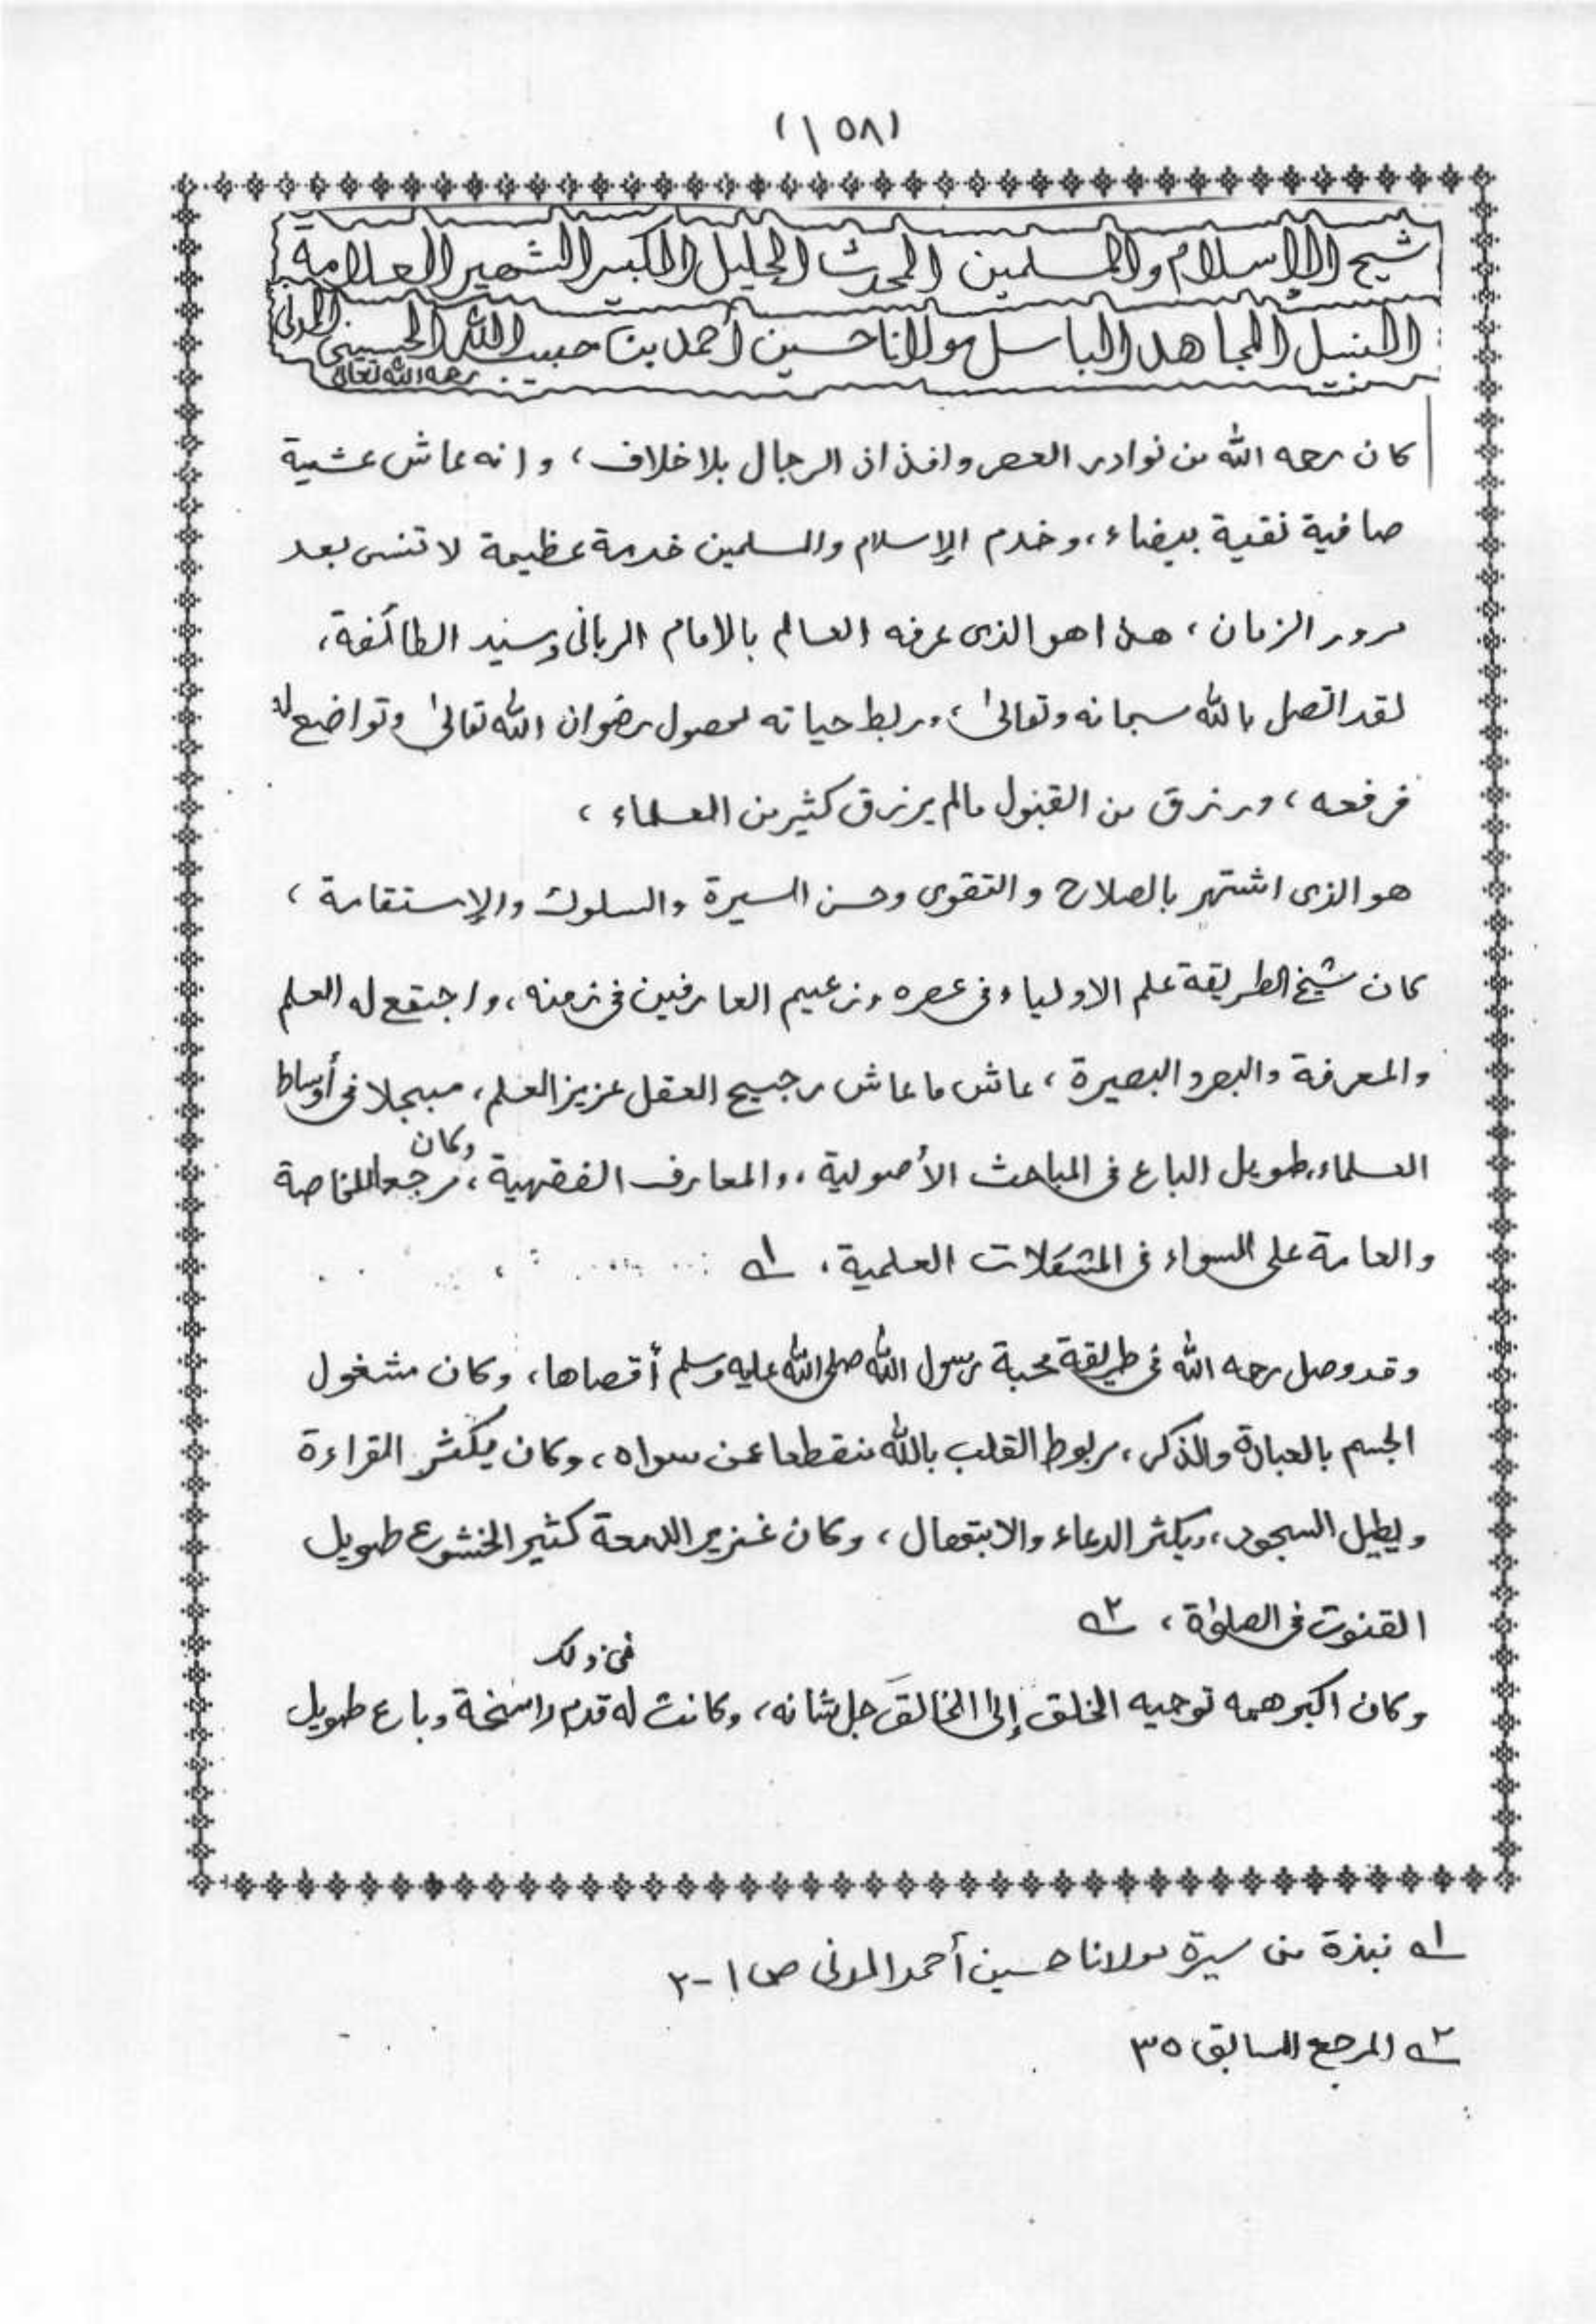 (١٥٨)
شيخ الإسلام والمسلمين المحدث الجليل الكبير الشهير العلامة
النبيل المجاهد الباسل مولانا حسين أحمد بن حبيب الله الحسيني المدنى
رحمه الله تعالى
كان رحمه الله من نوادر العصر وافذاذ الرجال بلا خلاف، وانه عاش عشية
صافية نقية بيضاء، وخدم الإسلام والمسلمين خدمة عظيمة لا تنسى بعد
مرور الزمان، هذا هو الذى عرفه العالم بالامام الربانى وسيد الطائفة،
لقد اتصل بالله سبحانه وتعالىٰ، وربط حياته لحصول رضوان الله تعالىٰ وتواضع له
فرفعه، ورزق من القبول مالم يرزق كثير من العلماء،
هو الذى اشتهر بالصلاح والتقوى وحسن السيرة والسلوك والإستقامة،
كان شيخ الطريقة علم الاولياء فى عصره وزعيم العارفين فى زمنه، واجتمع له العلم
والمعرفة والبصر والبصيرة، عاش ما عاش رجيح العقل عزيز العلم، مبجلا فى أوساط
العلماء، طويل الباع فى المباحث الأصولية، والمعارف الفقهية، وكان مرجعا للخاصة
والعامة على السواء فى المشكلات العلمية، ١ـه
وقد وصل رحمه الله فى طريقة محبة رسول الله صلى الله عليه وسلم أقصاها، وكان مشغول
الجسم بالعبادة والذكر، مربوط القلب بالله منقطعا عن سواه، وكان يكثر القراءة
ويطيل السجود، ويكثر الدعاء والابتهال، وكان غزير الدمعة كثير الخشوع طويل
القنوت فى الصلوٰة، ٢ـه
وكان اكبر همه توجيه الخلق إلى الخالق جل شانه، وكانت له فى ذلك قدم راسخة وباع طويل
١ـه نبذة من سيرة مولانا حسين أحمد المدنى ص ١-٢
٢ـه المرجع السابق ٣٥